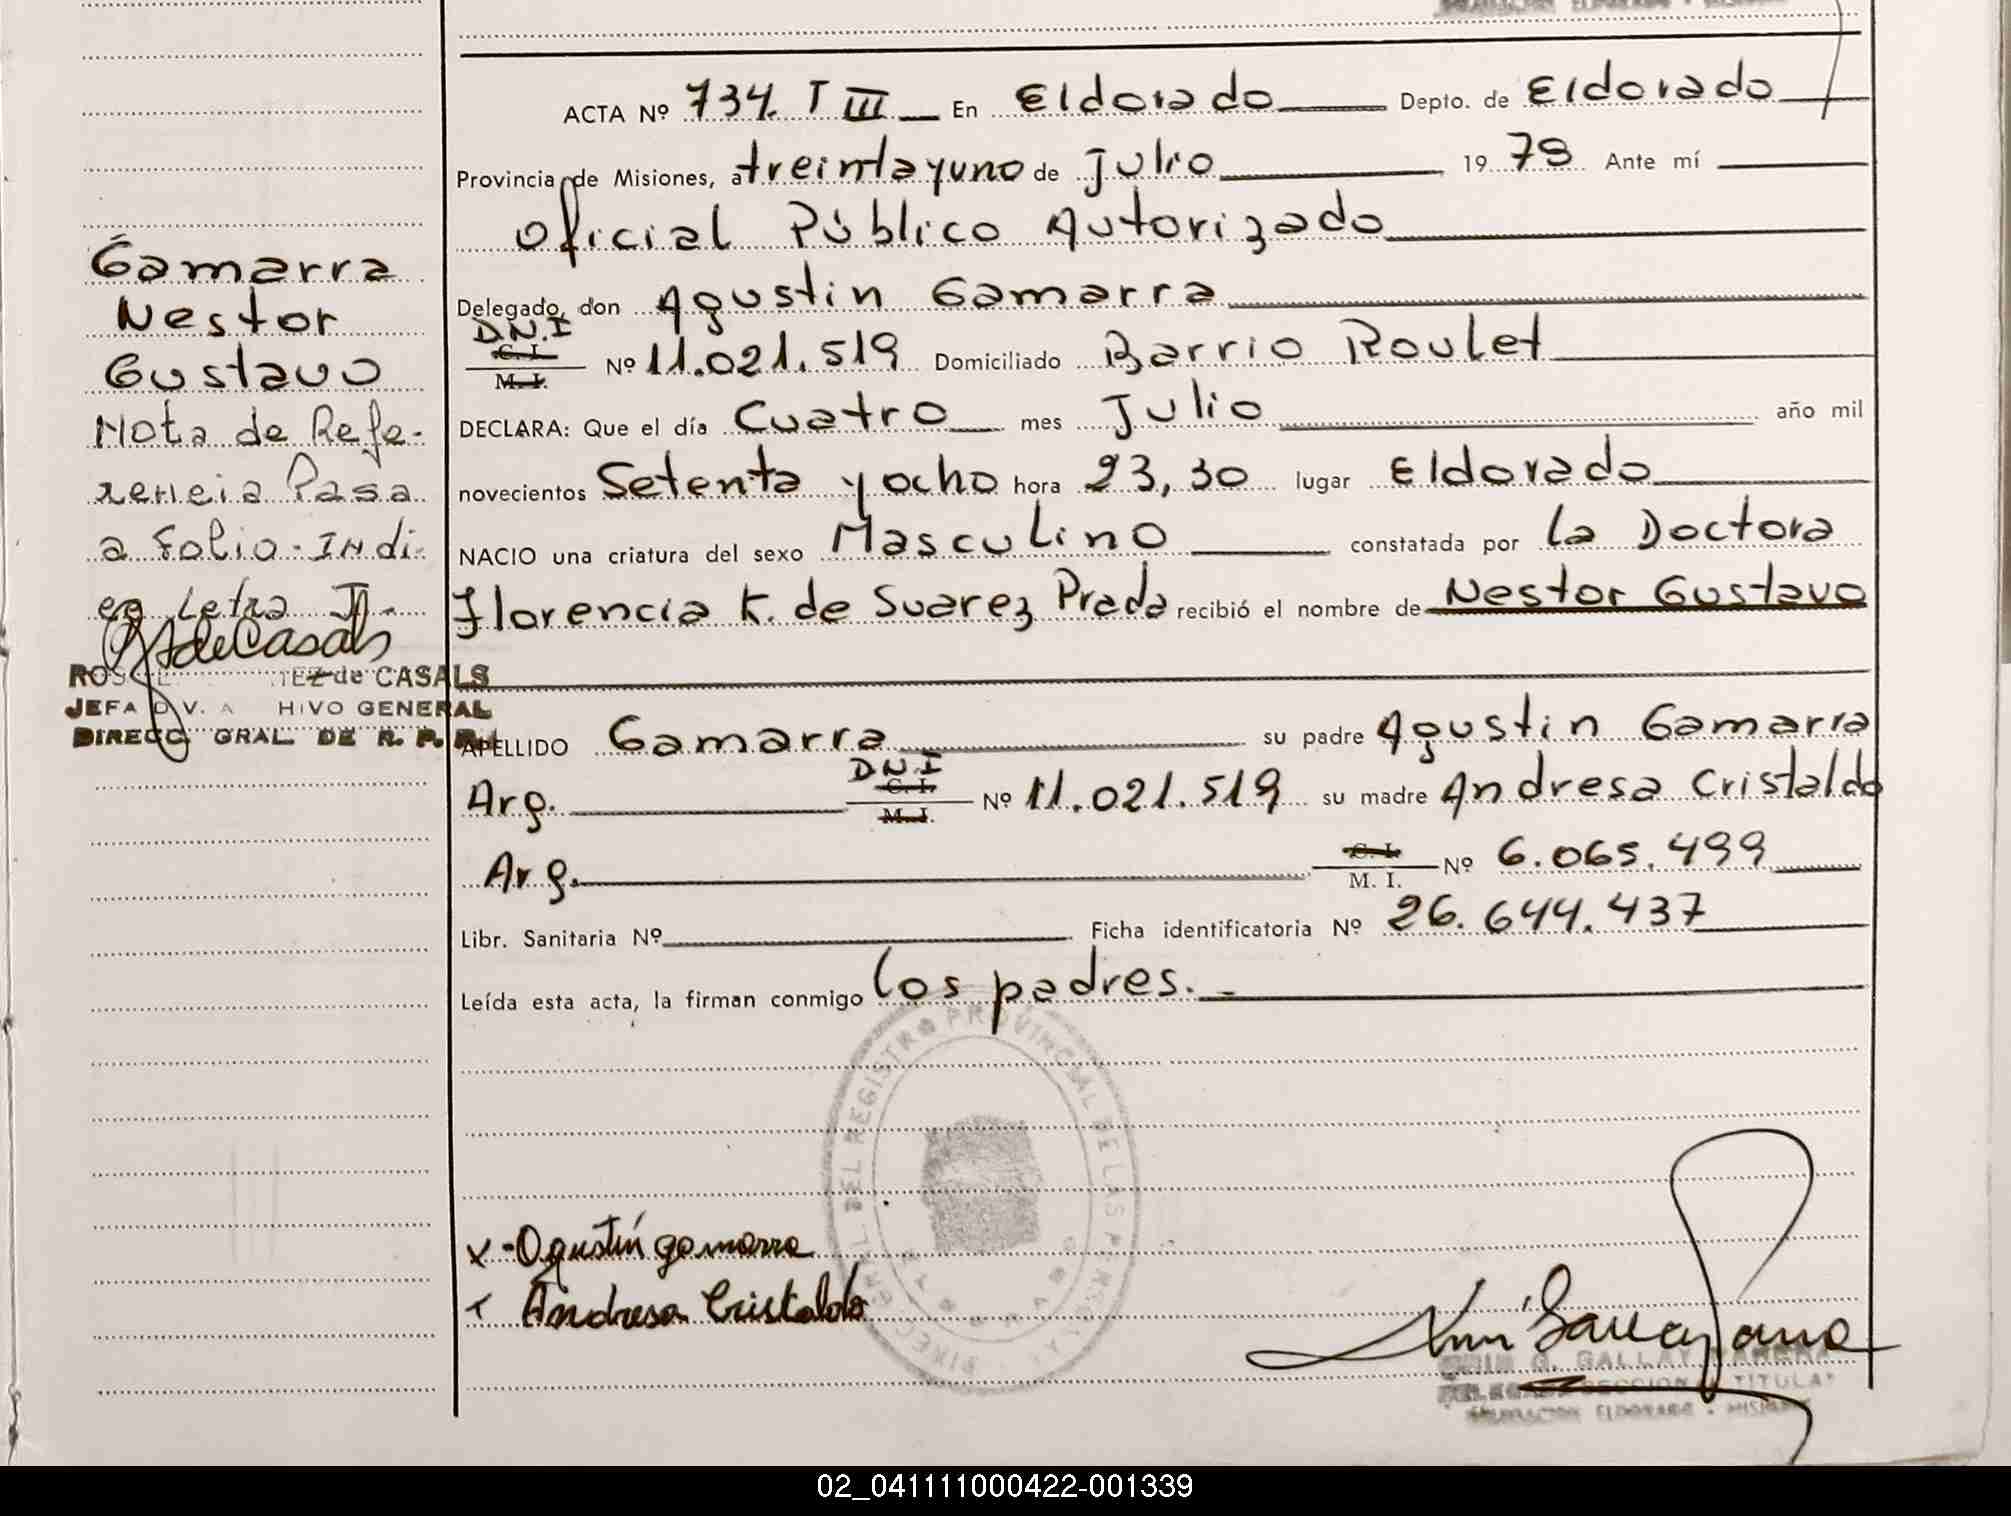 ACTA Nº 734. T III En Eldorado Depto. de Eldorado
Provincia de Misiones, a treintayuno de Julio 19 78 Ante mí
Oficial Público Autorizado
Delegado, don Agustin Gamarra
D.N.I C. I. M. I. Nº 11.021.519 Domiciliado Barrio Roulet
DECLARA: Que el día Cuatro mes Julio año mil
novecientos Setenta y ocho hora 23,30 lugar Eldorado
NACIO una criatura del sexo Masculino constatada por la Doctora
Florencia K. de Suarez Prada recibió el nombre de Nestor Gustavo
APELLIDO Gamarra su padre Agustin Gamarra
Arg. D.N.I C. I. M. I. Nº 11.021.519 su madre Andresa Cristaldo
Arg. C. I. M. I. Nº 6.065.499
Libr. Sanitaria Nº Ficha identificatoria Nº 26.644.437
Leída esta acta, la firman conmigo los padres.-
Gamarra
Nestor
Gustavo
Nota de Refe-
rencia Pasa
a folio-Indi-
ce Letra
deCasals
de CASALS
JEFA HIVO GENERAL
DIRECC. GRAL. DE R. P.
DIRECC. GRAL. DEL REGISTRO PROVINCIAL DE LAS PERSONAS
x-Agustín gamarra
x Andresa Cristaldo
G. GALLAY
TITULAR
ELDORADO - MISIONES
02_041111000422-001339